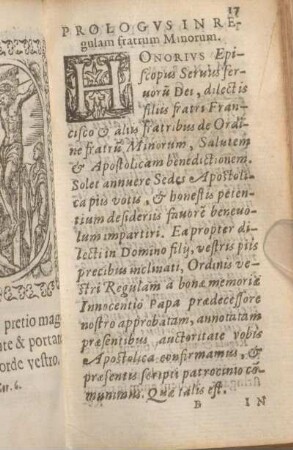 17
PROLOGVS IN RE-
gulam fratrum Minorum.
HONORIUS Epi-
scopus Seruus ser-
uorũ Dei, dilectis
filiis fratri Fran-
cisco & aliis fratribus de Ordi-
ne fratrũ Minorum, Salutem
& Apostolicam benedictionem.
Solet annuere Sedes Apostoli-
ca piis votis, & honestis peten-
tium desideriis fauorẽ beneuo-
lum impartiri. Ea propter di-
lecti in Domino filij, vestris piis
precibus inclinati, Ordinis ve-
stri Regulam à bonæ memoriæ
Innocentio Papa prædecessore
nostro approbatam, annotatam
præsentibus, auctoritate vobis
Apostolica confirmamus, &
præsentis scripti patrocinio cõ-
munimus. Quæ talis est.
B IN
pretio mag
te & portat
orde vestro.
or. 6.